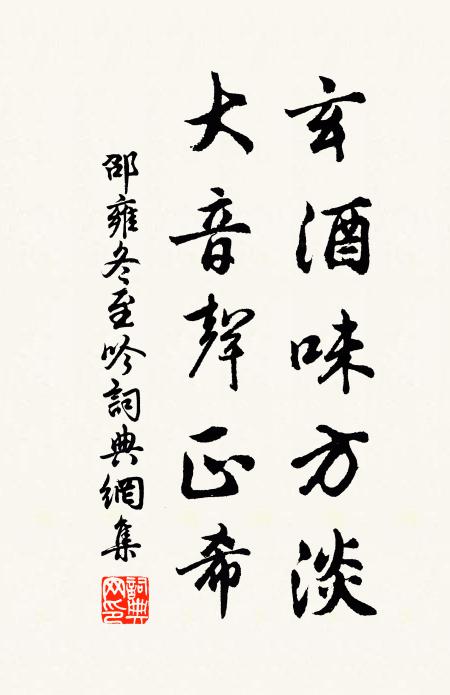 玄酒味方淡
大音聲正希
邵雍冬至吟詞典網集
詞典網印